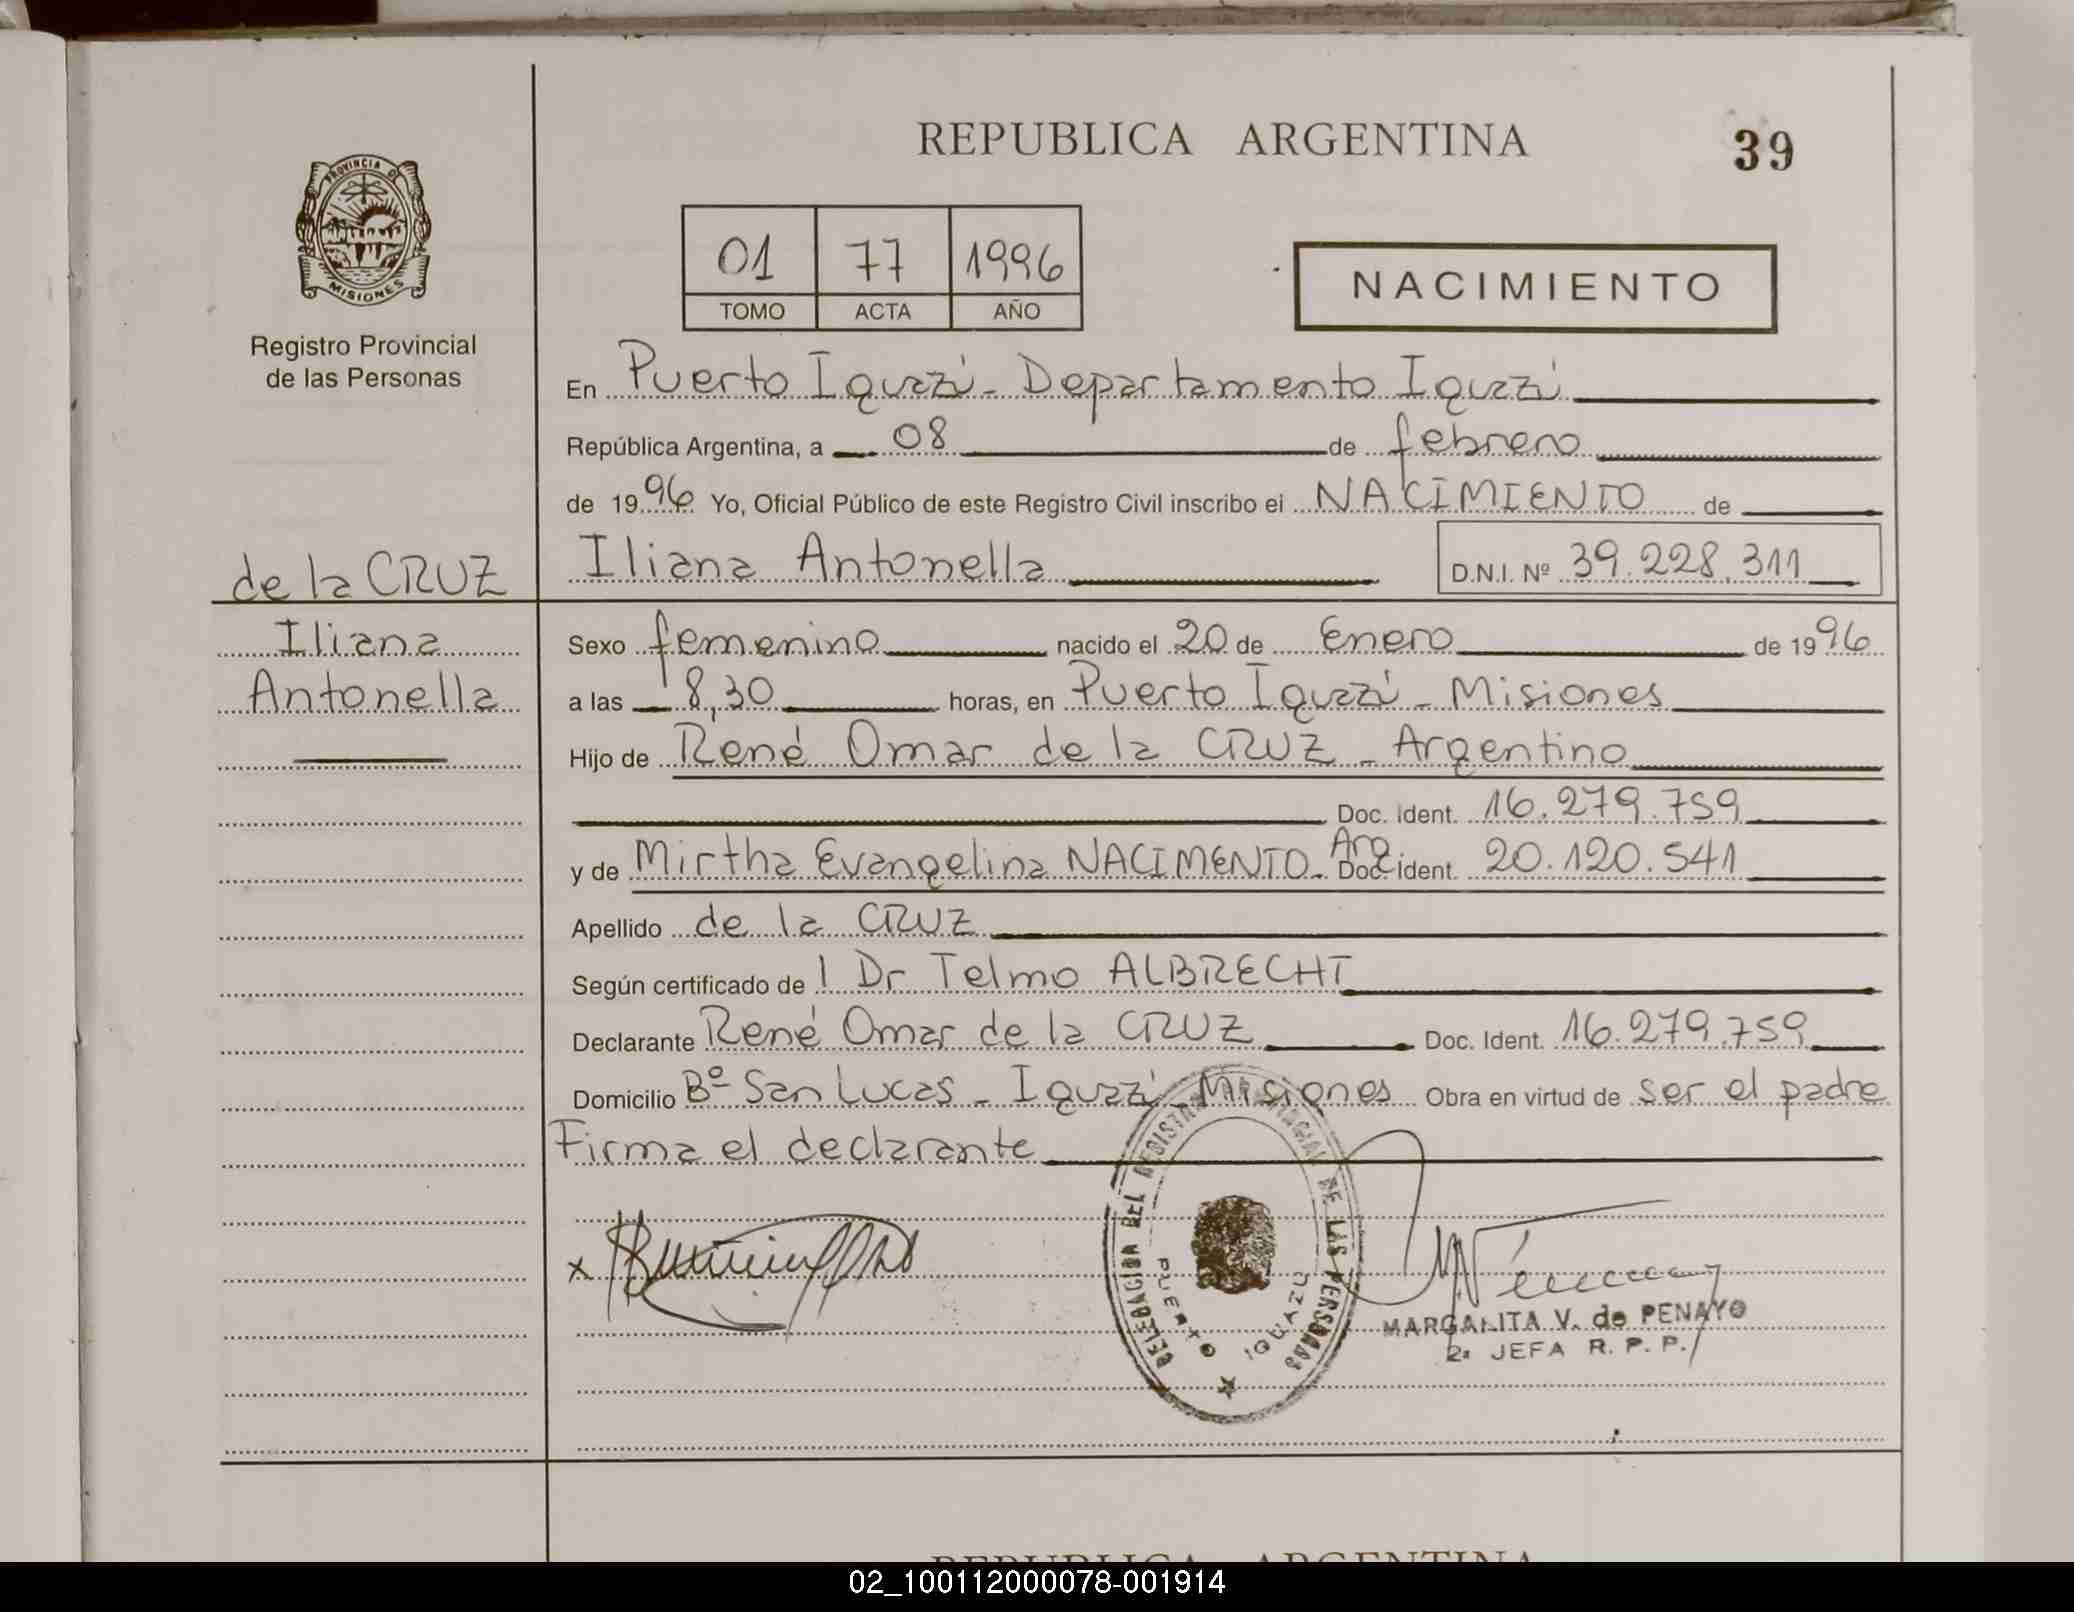 REPUBLICA ARGENTINA
39
PROVINCIA DE
MISIONES
Registro Provincial
de las Personas
01 77 1996
TOMO ACTA AÑO
NACIMIENTO
En Puerto Iguazú - Departamento Iguazú
República Argentina, a 08 de febrero
de 1996 Yo, Oficial Público de este Registro Civil inscribo el NACIMIENTO de
de la CRUZ
Iliana Antonella
D.N.I. Nº 39.228.311
Iliana
Antonella
Sexo femenino nacido el 20 de Enero de 1996
a las 8,30 horas, en Puerto Iguazú - Misiones
Hijo de René Omar de la CRUZ - Argentino
Doc. Ident. 16.279.759
y de Mirtha Evangelina NACIMENTO - Arg Doc. Ident. 20.120.541
Apellido de la CRUZ
Según certificado de l Dr Telmo ALBRECHT
Declarante René Omar de la CRUZ Doc. Ident. 16.279.759
Domicilio Bº San Lucas - Iguazú - Misiones Obra en virtud de ser el padre
Firma el declarante
x
DELEGACION DEL REGISTRO PROVINCIAL DE LAS PERSONAS
PUERTO IGUAZU
MARGARITA V. de PENAYO
2ª JEFA R. P. P.
REPUBLICA ARGENTINA
02_100112000078-001914